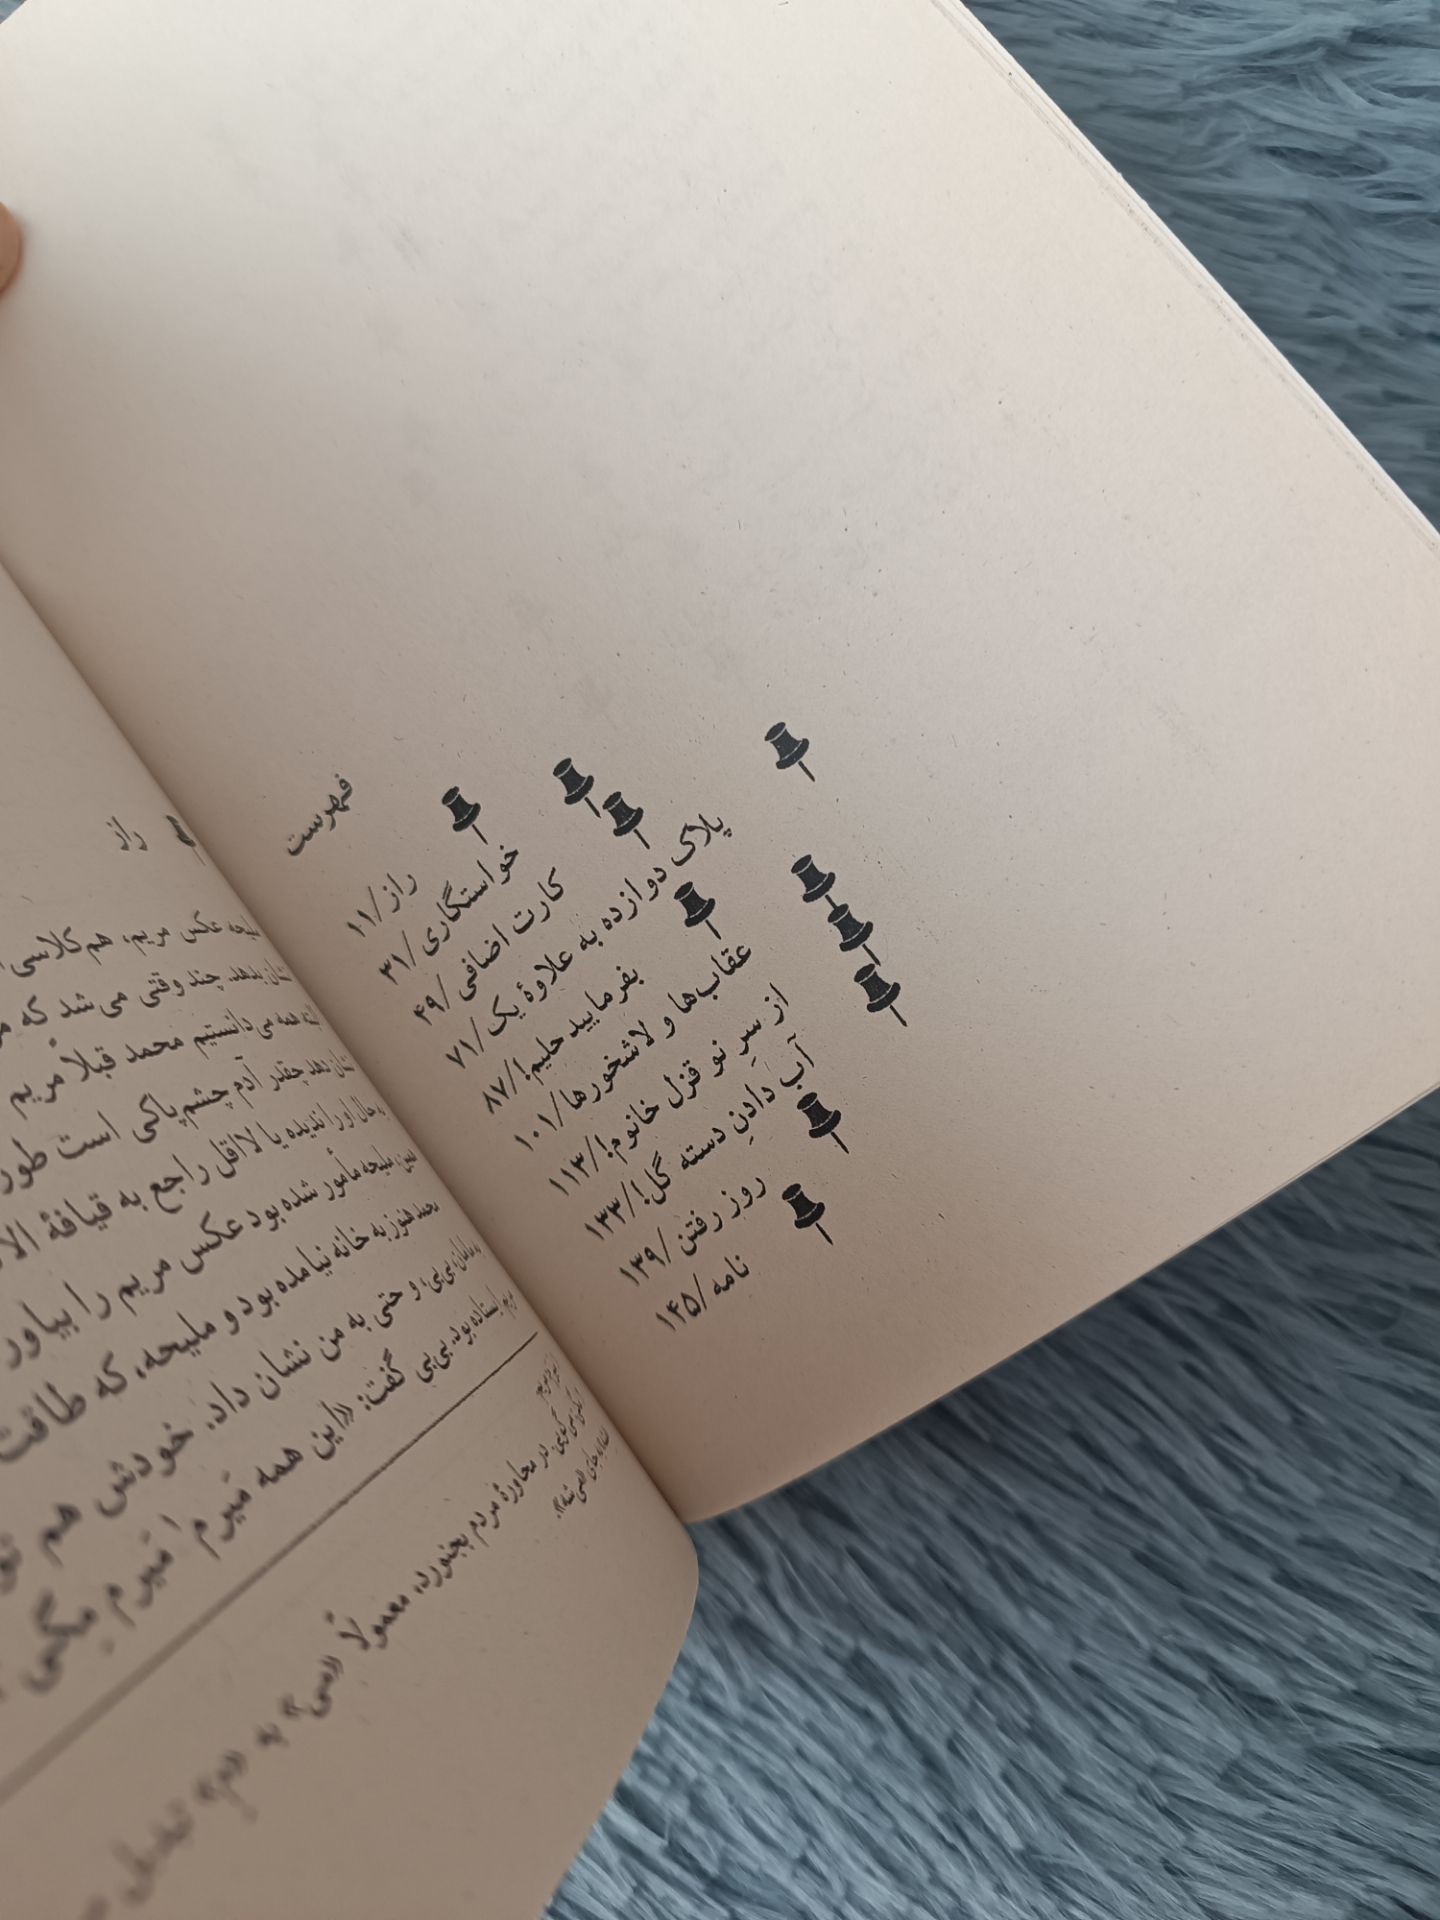 فهرست
راز/۱۱
خواستگاری/۳۱
کارت اضافی/۴۹
پلاک دوازده به علاوهٔ یک/۷۱
بفرمایید حلیم!/۸۷
عقاب‌ها و لاشخورها/۱۰۱
از سرِ نو قزل خانوم!/۱۱۳
آب دادنِ دسته گل!/۱۳۳
روز رفتن/۱۳۹
نامه/۱۴۵
راز
ملیحه عکس مریم، هم‌کلاسی
نشان بدهد. چند وقتی می‌شد که
همه می‌دانستیم محمد قبلاً مریم
نشان دهد چقدر آدم چشم‌پاکی است طور
به حال او را ندیده یا لااقل راجع به قیافهٔ
ملیحه مأمور شده بود عکس مریم را بیاور
محمد هنوز به خانه نیامده بود و ملیحه، که طاقت
بی‌بی، و حتی به من نشان داد. خودش هم
ایستاده بود. بی‌بی گفت: «این همه مَیرم مَیرم مِگی
در محاورهٔ مردم بجنورد، معمولاً «می» به «مِ» تبدیل